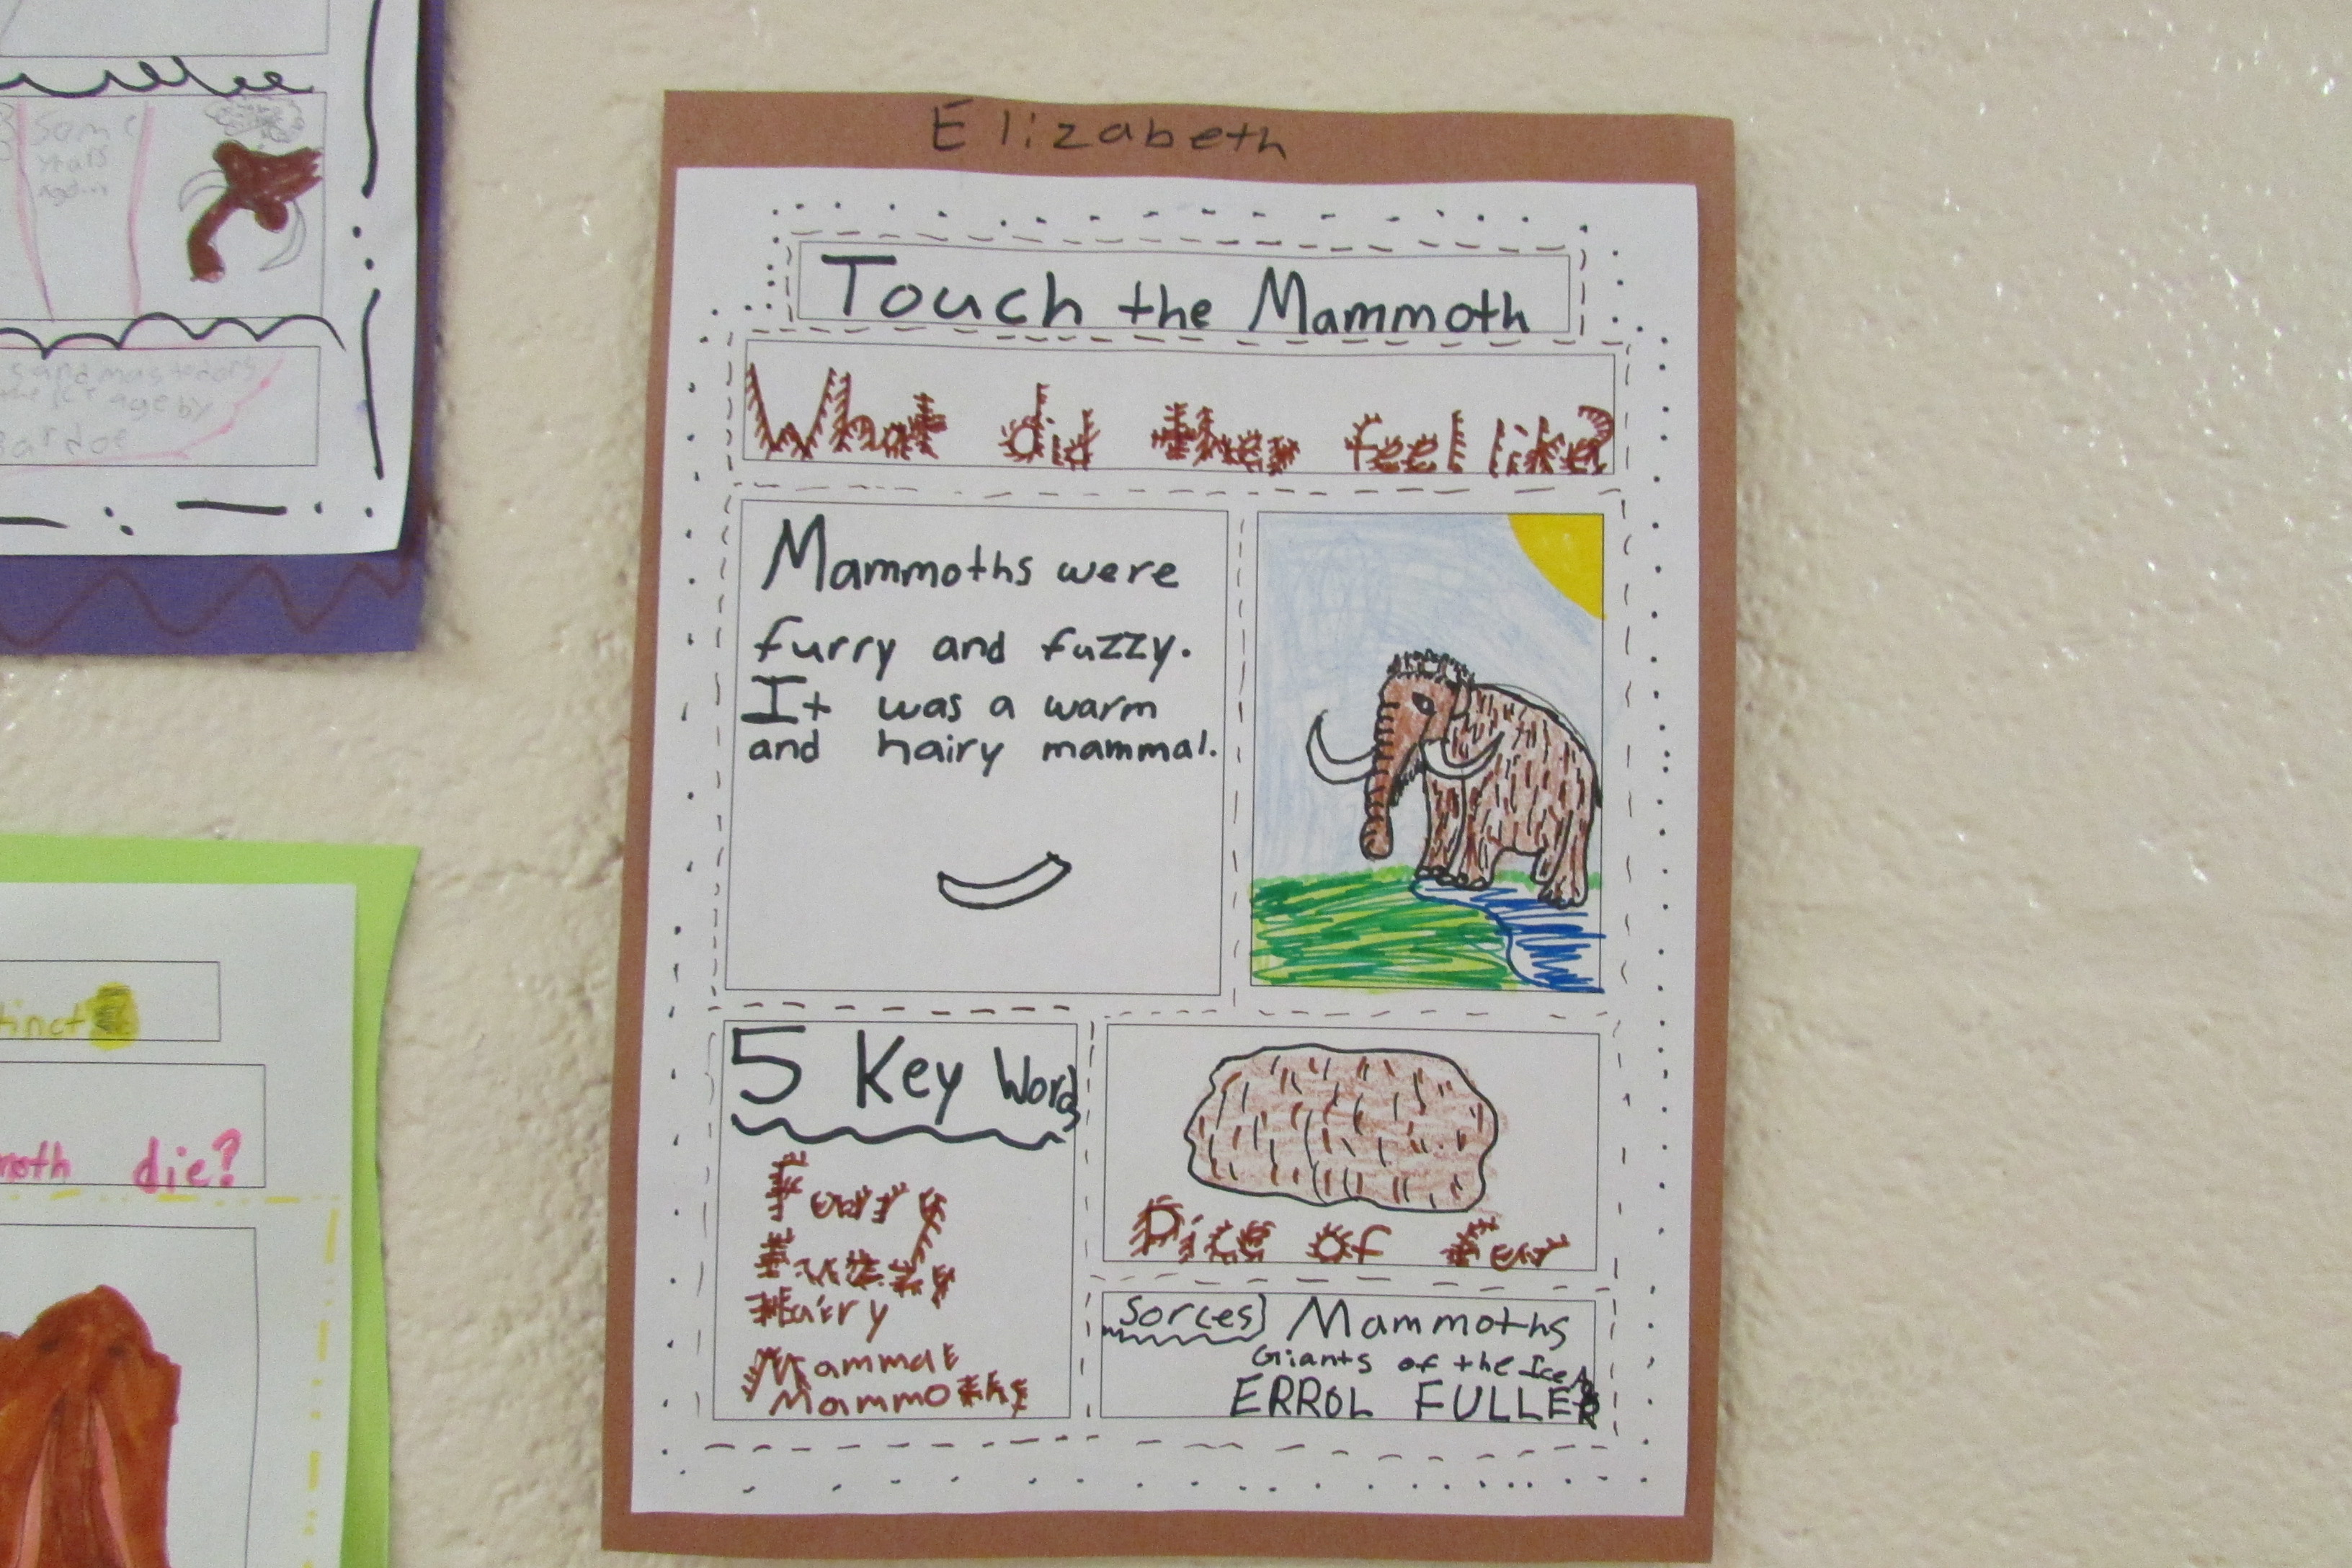 Elizabeth
Touch the Mammoth
What did they feel like?
Mammoths were
furry and fuzzy.
It was a warm
and hairy mammal.
5 Key Words
Furry
Fuzzy
Hairy
Mammal
Mammoths
Pice of Fur
Sorces
Mammoths
Giants of the Ice Age
ERROL FULLER
Some
years
agein
s and mastedons
the ice age by
Bardoe
tinct
moth die?